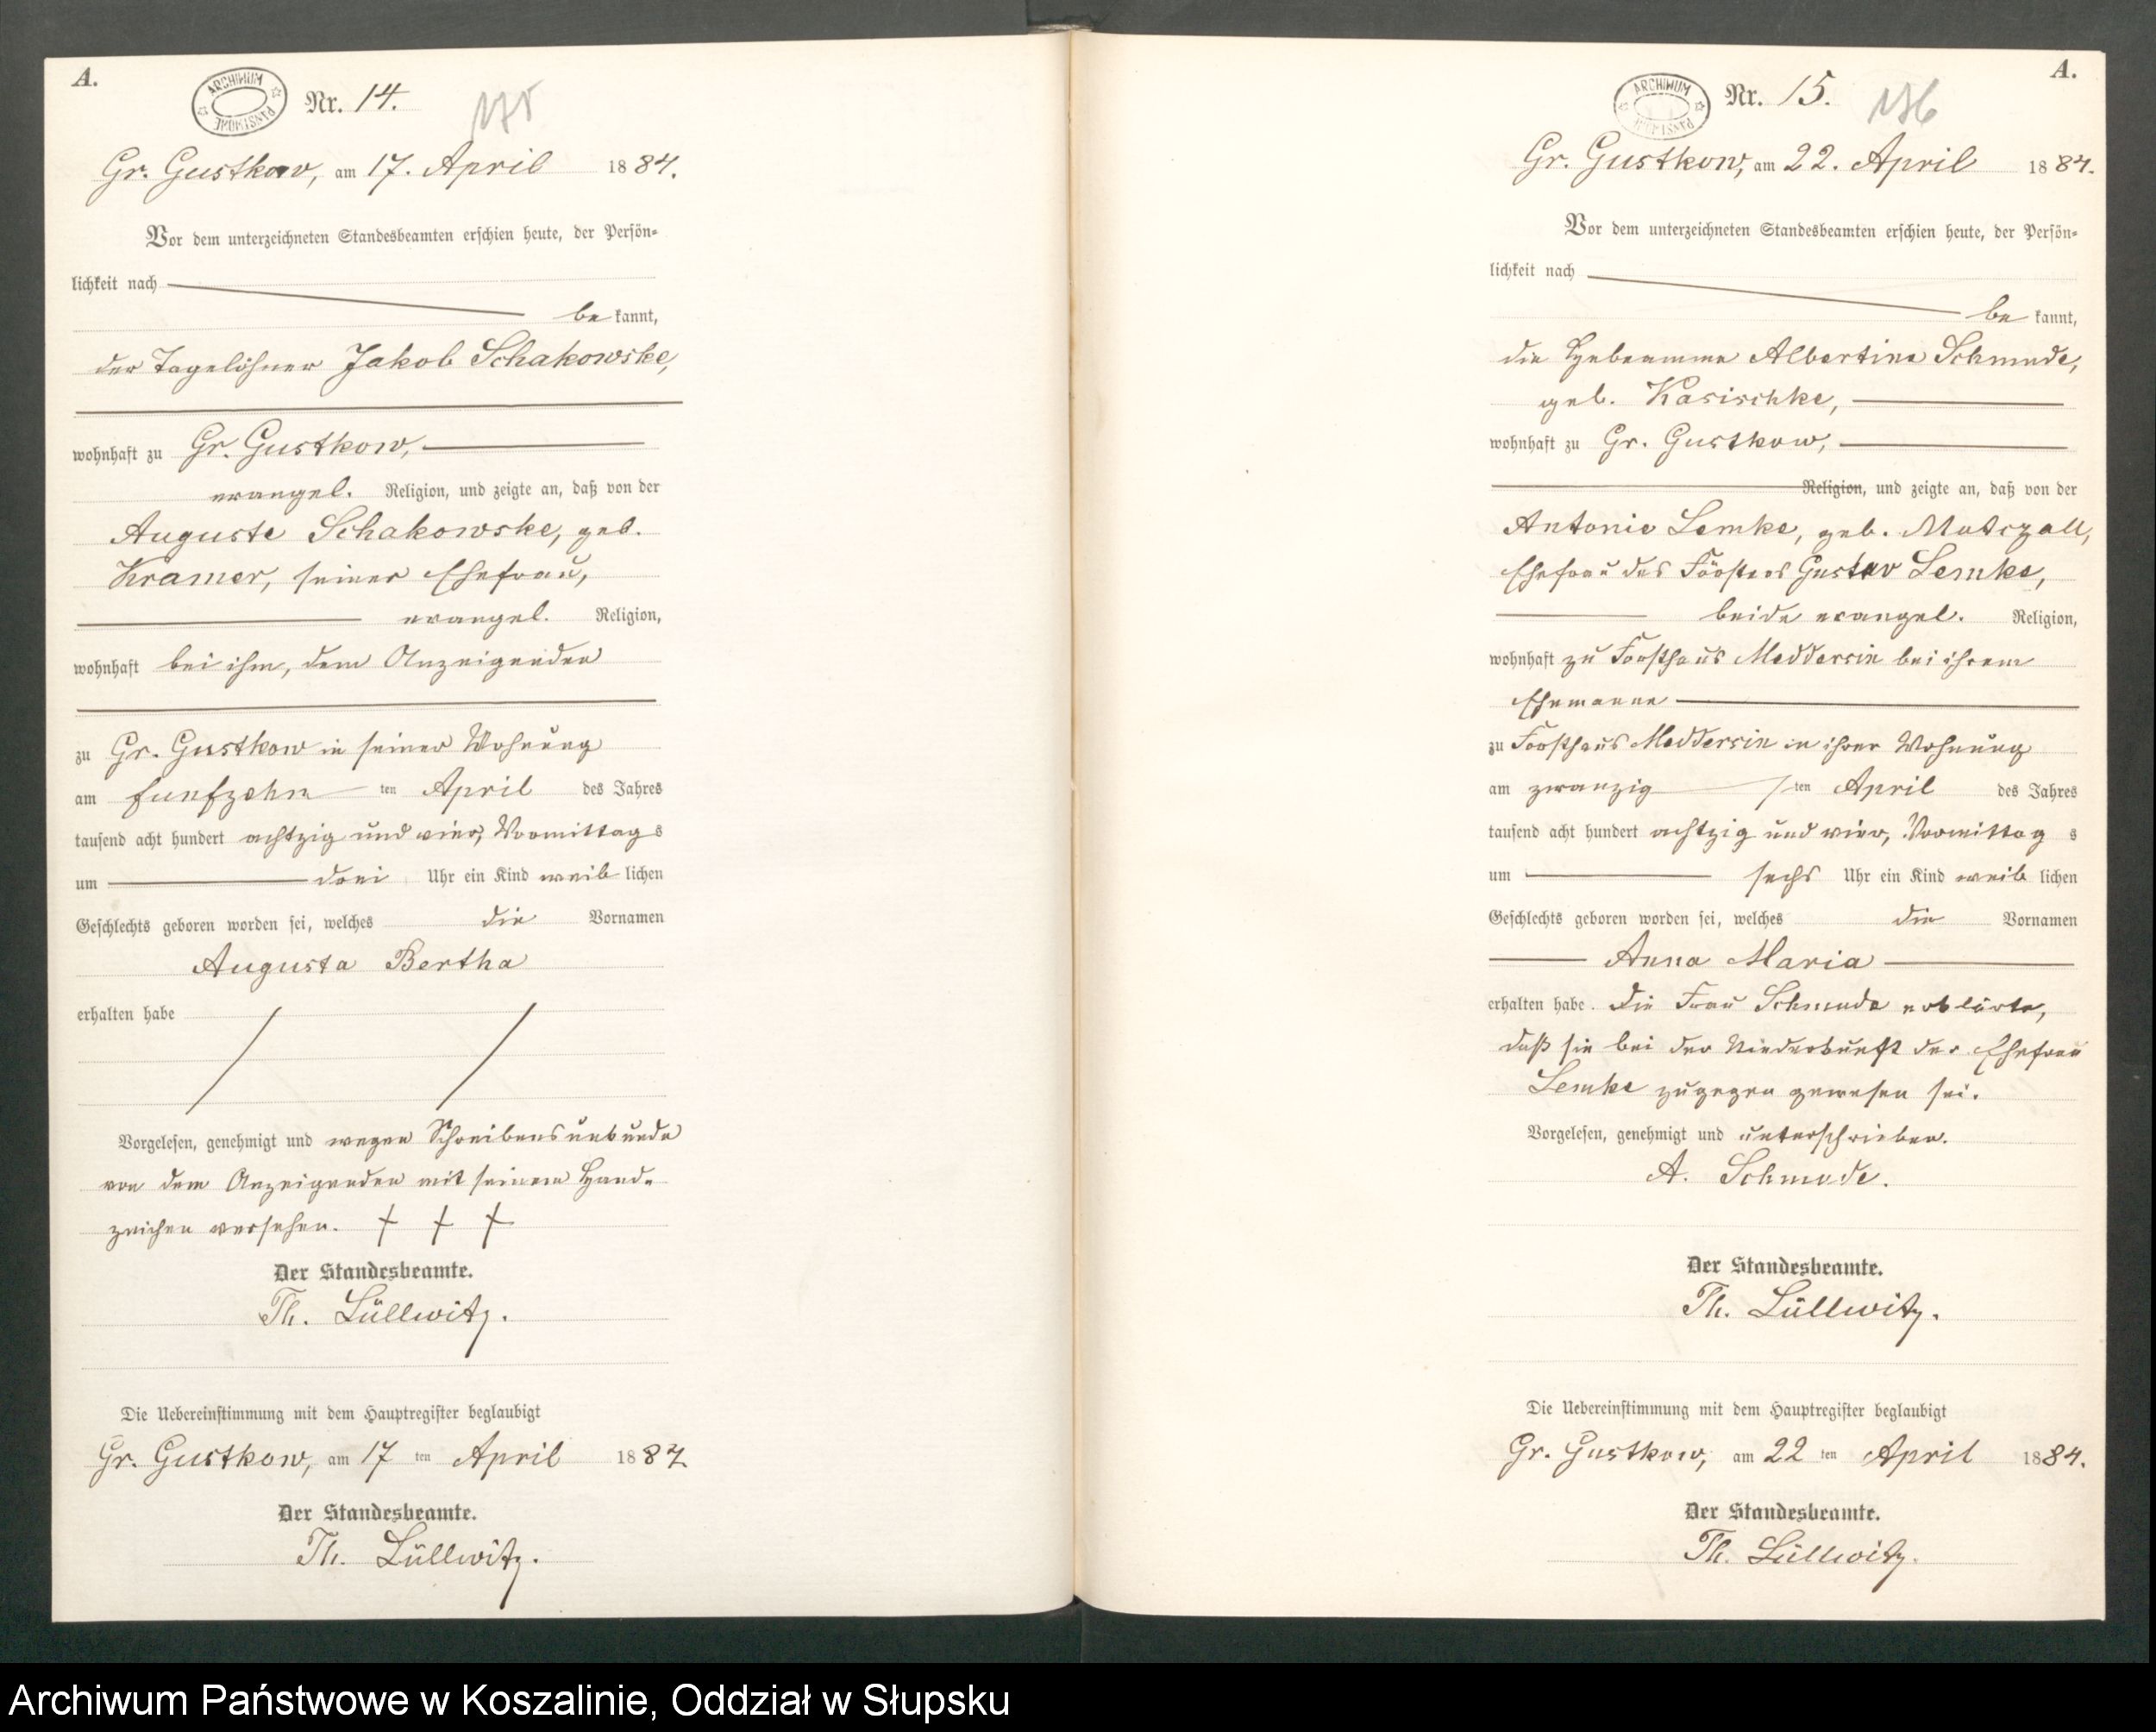 A.
ARCHIWUM PAŃSTWOWE
Nr. 14.
Gr. Gustkow, am 17. April 1884.
Vor dem unterzeichneten Standesbeamten erschien heute, der Persön-
lichkeit nach
be kannt,
der Tagelöhner Jakob Schakowske,
wohnhaft zu Gr. Gustkow,
evangel. Religion, und zeigte an, daß von der
Auguste Schakowske, geb.
Kramer, seiner Ehefrau,
evangel. Religion,
wohnhaft bei ihm, dem Anzeigenden
zu Gr. Gustkow in seiner Wohnung
am funfzehn ten April des Jahres
tausend acht hundert achtzig und vier, Vormittag s
um drei Uhr ein Kind weib lichen
Geschlechts geboren worden sei, welches die Vornamen
Augusta Bertha
erhalten habe
Vorgelesen, genehmigt und wegen Schreibensunkunde
von dem Anzeigenden mit seinem Hand-
zeichen versehen. + + +
Der Standesbeamte.
Th. Lüllwitz.
Die Uebereinstimmung mit dem Hauptregister beglaubigt
Gr. Gustkow, am 17 ten April 1884
Der Standesbeamte.
Th. Lüllwitz.
A.
ARCHIWUM PAŃSTWOWE
Nr. 15.
Gr. Gustkow, am 22. April 1884.
Vor dem unterzeichneten Standesbeamten erschien heute, der Persön-
lichkeit nach
be kannt,
die Hebeamme Albertine Schmude,
geb. Kasischke,
wohnhaft zu Gr. Gustkow,
Religion, und zeigte an, daß von der
Antonie Lemke, geb.
Ehefrau des Försters Gustav Lemke,
beide evangel. Religion,
wohnhaft zu Forsthaus Meddersin bei ihrem
Ehemanne
zu Forsthaus Meddersin in ihrer Wohnung
am zwanzig ten April des Jahres
tausend acht hundert achtzig und vier, Vormittag s
um sechs Uhr ein Kind weib lichen
Geschlechts geboren worden sei, welches die Vornamen
Anna Maria
erhalten habe. Die Frau Schmude erklärte,
daß sie bei der Niederkunft der Ehefrau
Lemke zugegen gewesen sei.
Vorgelesen, genehmigt und unterschrieben.
A. Schmude.
Der Standesbeamte.
Th. Lüllwitz.
Die Uebereinstimmung mit dem Hauptregister beglaubigt
Gr. Gustkow, am 22 ten April 1884.
Der Standesbeamte.
Th. Lüllwitz.
Archiwum Państwowe w Koszalinie, Oddział w Słupsku